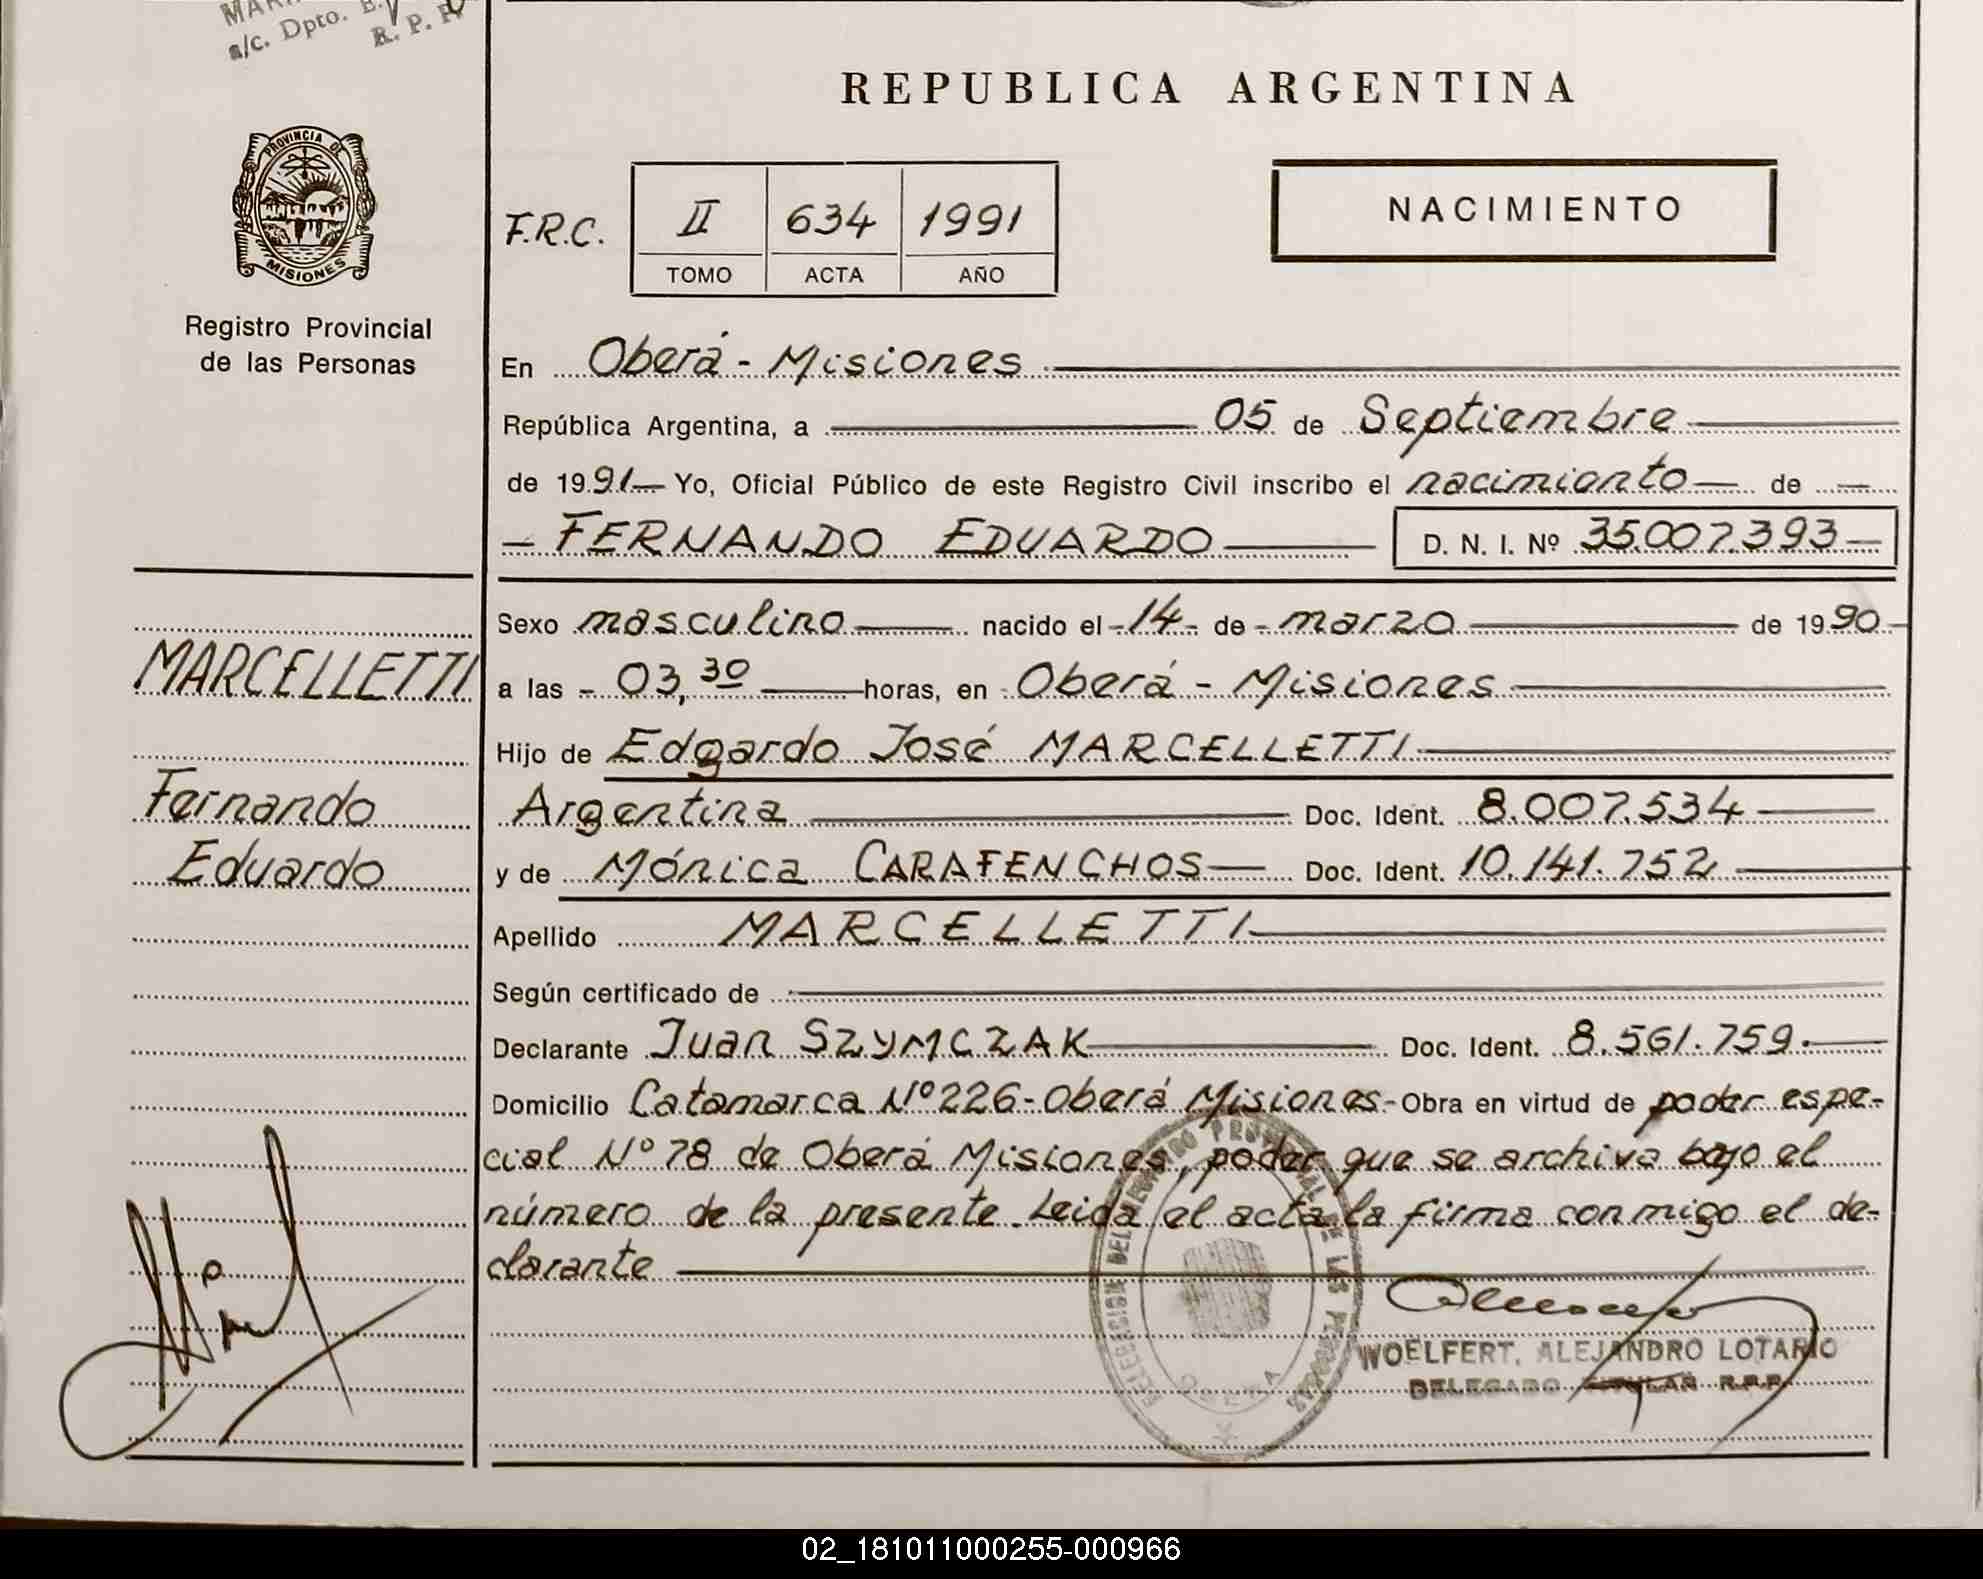 a/c. Dpto.
R. P. P.
PROVINCIA DE
MISIONES
Registro Provincial
de las Personas
MARCELLETTI
Fernando
Eduardo
REPUBLICA ARGENTINA
F.R.C.
II 634 1991
TOMO ACTA AÑO
NACIMIENTO
En Oberá - Misiones
República Argentina, a 05 de Septiembre
de 1991 Yo, Oficial Público de este Registro Civil inscribo el nacimiento de
FERNANDO EDUARDO D. N. I. Nº 35.007.393
Sexo masculino nacido el 14 de marzo de 1990
a las 03,30 horas, en Oberá - Misiones
Hijo de Edgardo José MARCELLETTI
Argentina Doc. Ident. 8.007.534
y de Mónica CARAFENCHOS Doc. Ident. 10.141.752
Apellido MARCELLETTI
Según certificado de
Declarante Juan SZYMCZAK Doc. Ident. 8.561.759.
Domicilio Catamarca Nº 226 - Oberá Misiones - Obra en virtud de poder espe-
cial Nº 78 de Oberá Misiones, poder que se archiva bajo el
número de la presente. Leida el acta la firma conmigo el de-
clarante
WOELFERT, ALEJANDRO LOTARIO
DELEGADO TITULAR R.P.P.
02_181011000255-000966